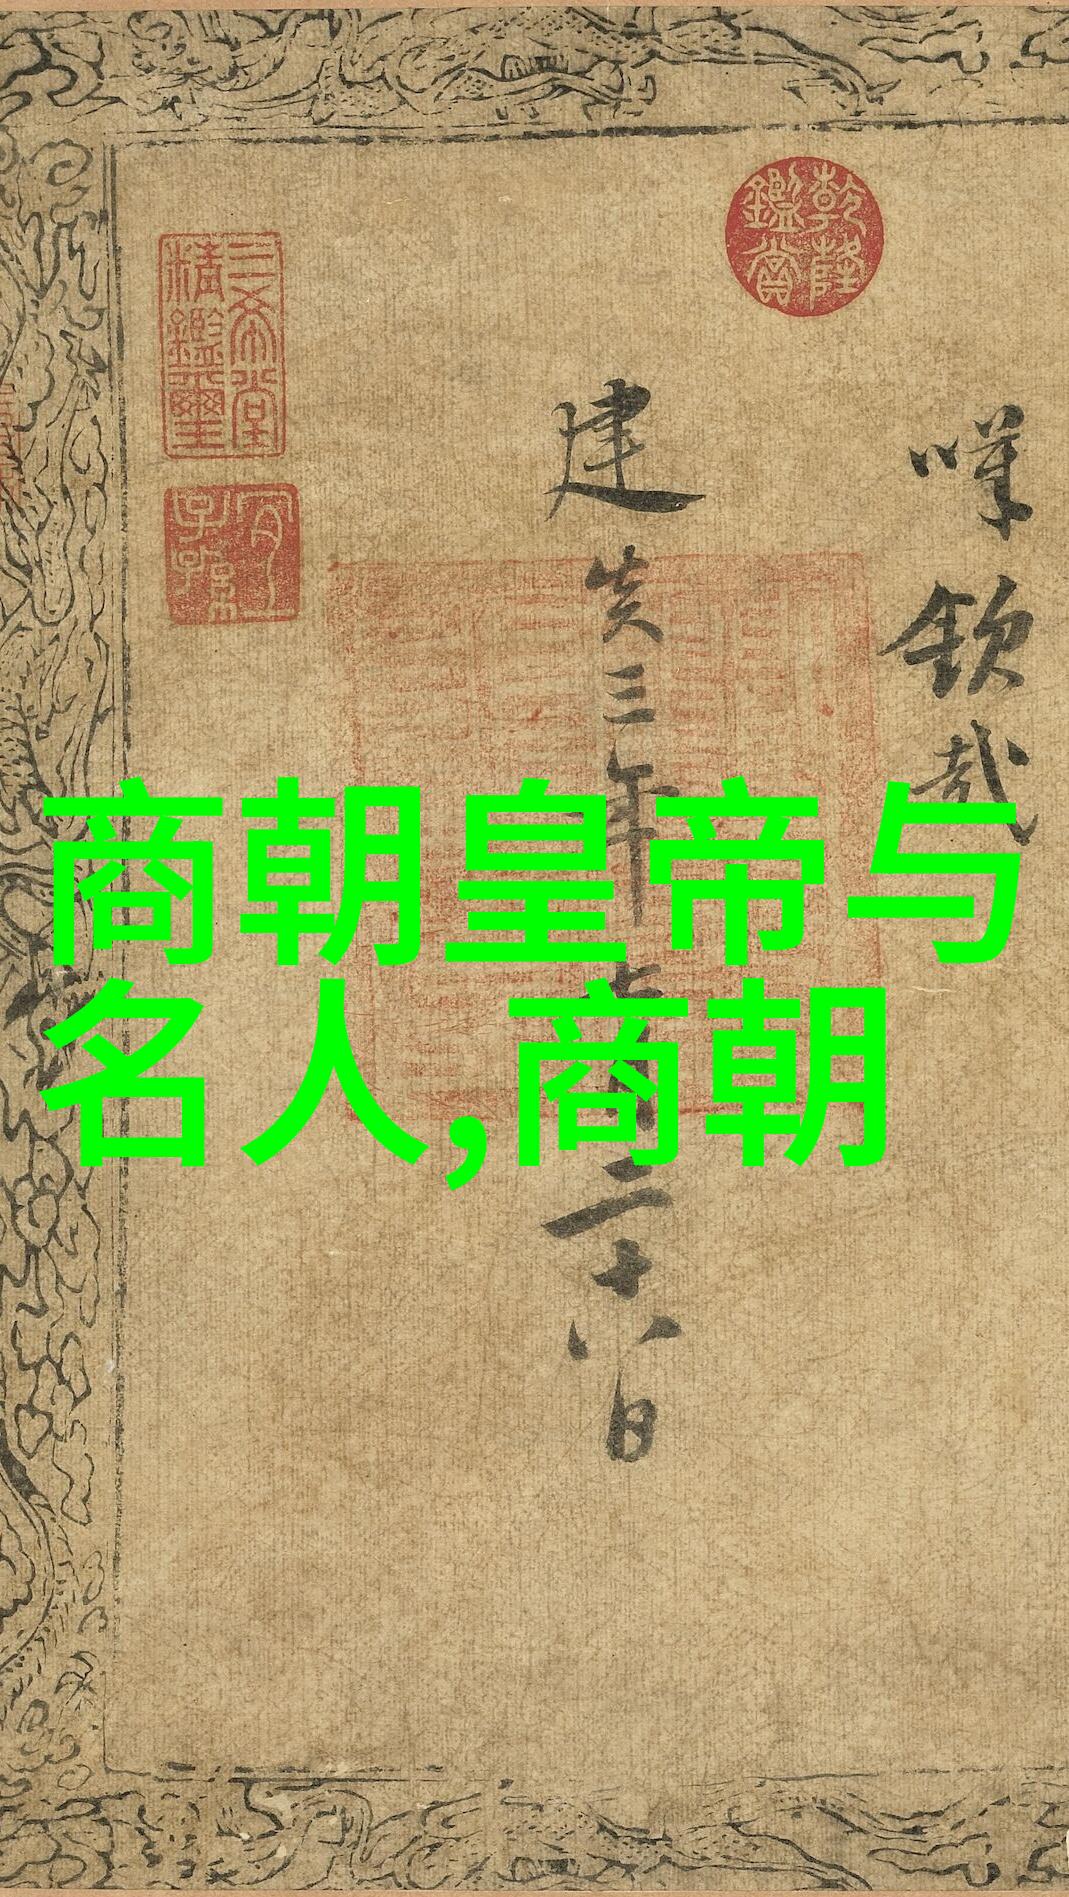 商朝皇帝与
名人,商朝
嘆欽哉
建炎三年七月二十六日
乾隆鑑賞
三希堂精鑑璽
宜子孫